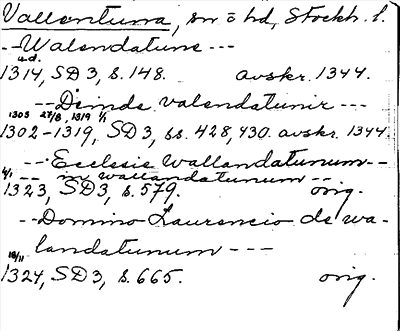 Vallentuna, sn o hd, Stockh. l.
--Walendatune---
u.d.
1314, SD 3, s. 148. avskr. 1344.
--Deinde valendatunir---
1303 27/8, 1319 1/1
1302-1319, SD 3, ss. 428, 430. avskr. 1344
---Ecclesie Wallandatunum--
6/1 -- in wallandatunum --
1323, SD 3, s. 579. orig.
--Domino Laurencio de wa-
landatunum ---
18/11
1324, SD 3, s. 665. orig.